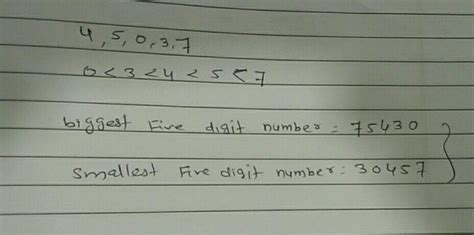 4, 5, 0, 3, 7
0 < 3 < 4 < 5 < 7
biggest Five digit number = 75430
smallest Five digit number : 30457